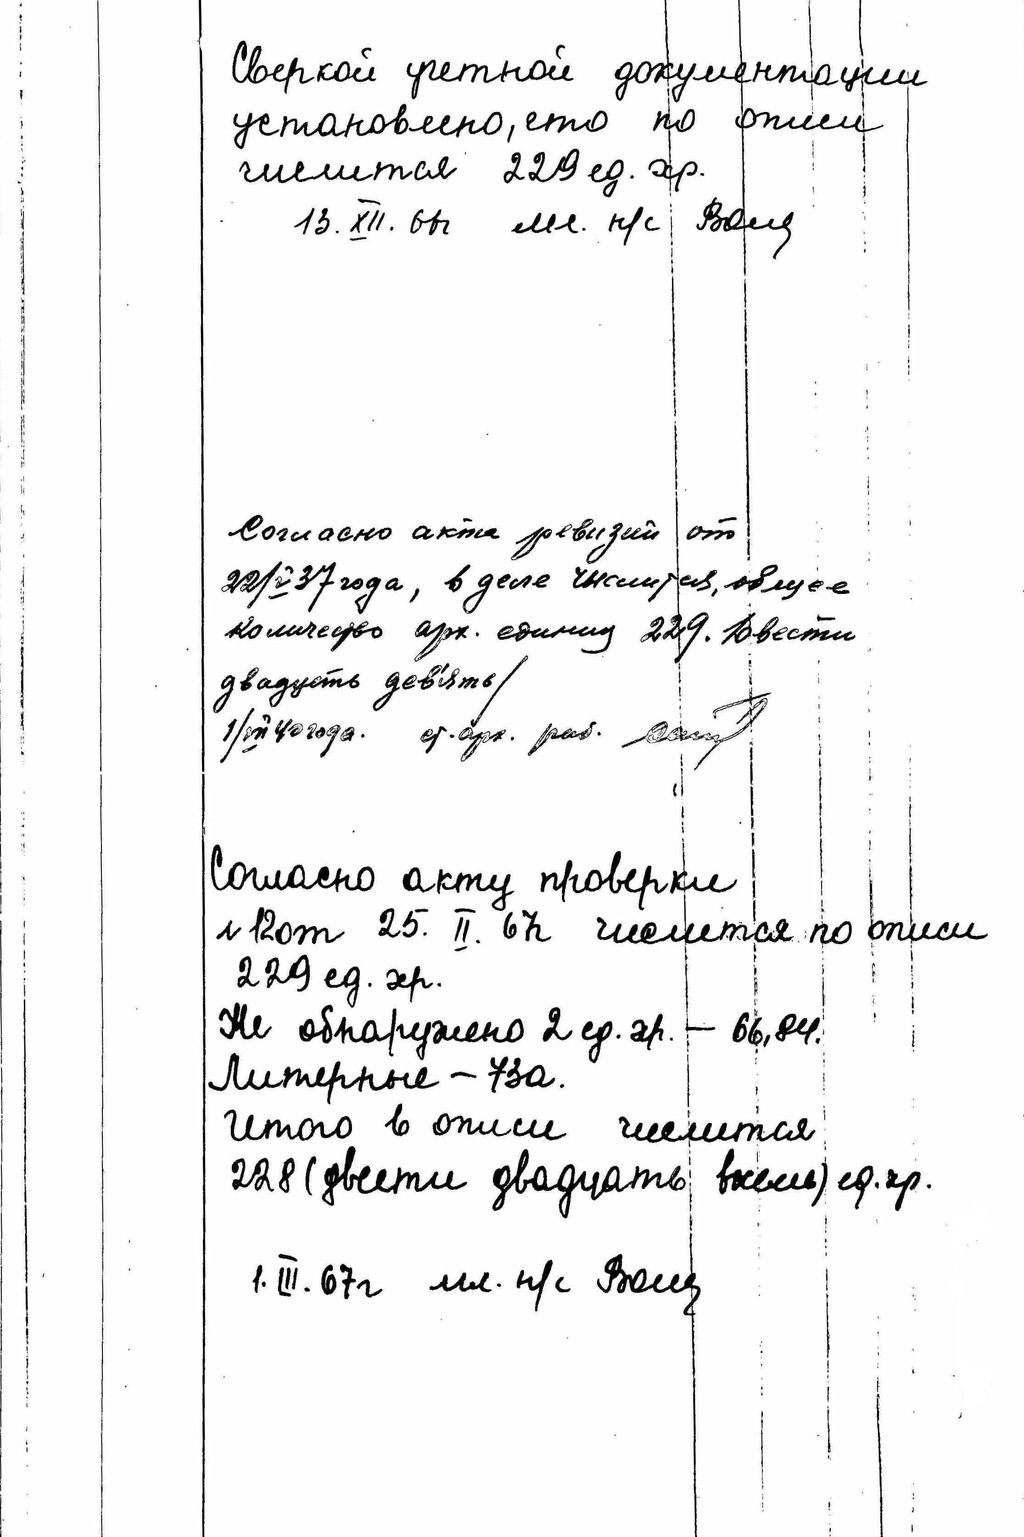 Сверкой учетной документации
установлено, что по описи
числится 229 ед. хр.
13. XII. 66г мл. н/с
Согласно акта ревизии от
22/V 37 года, в деле числится, общее
количество арх. единиц 229. Двести
двадцать дев'ять/
1/VII 40 года. ст. арх. раб.
Согласно акту проверки
№ 12 от 25. II. 67г числится по описи
229 ед. хр.
Не обнаружено 2 ед. хр. — 66, 84.
Литерные — 73а.
Итого в описи числится
228 (двести двадцать восемь) ед. хр.
1. III. 67г мл. н/с